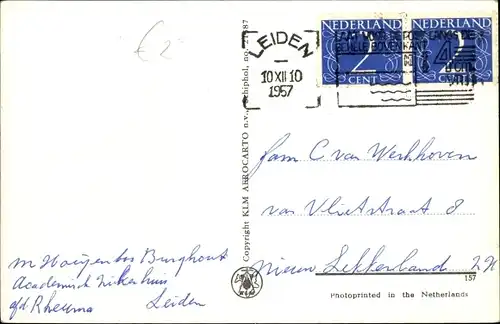 € 2
LEIDEN
10 XII 10
1957
NEDERLAND
2
CENT
NEDERLAND
2
CENT
Copyright KLM AEROCARTO n.v., Schiphol, no.
Fam C van Werkhoven
van Vlietstraat 8
Nieuw Lekkerland ZH
Academisch Ziekenhuis
afd Rheuma Leiden
157
Photoprinted in the Netherlands